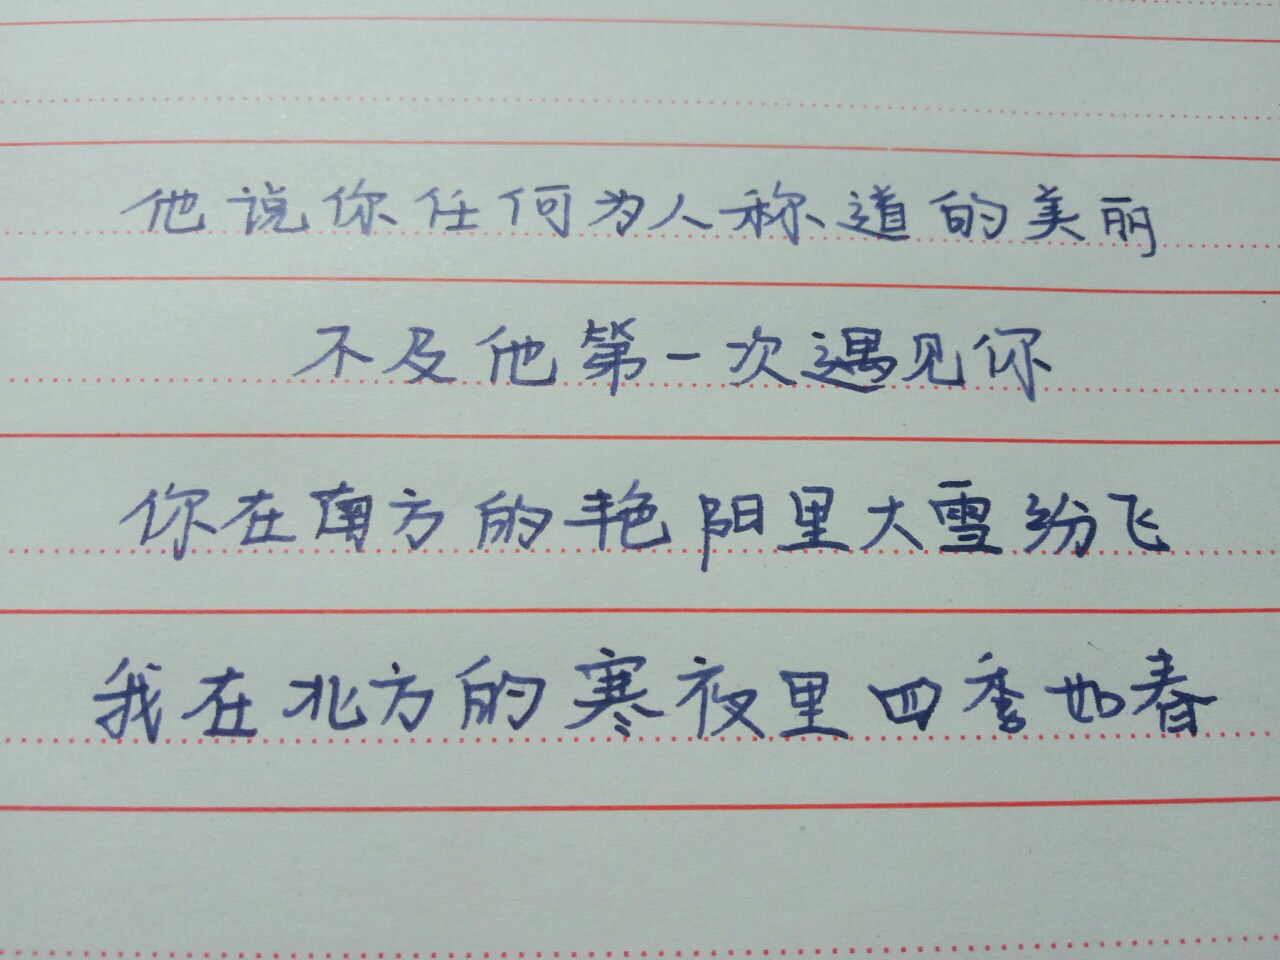 他说你任何为人称道的美丽
不及他第一次遇见你
你在南方的艳阳里大雪纷飞
我在北方的寒夜里四季如春